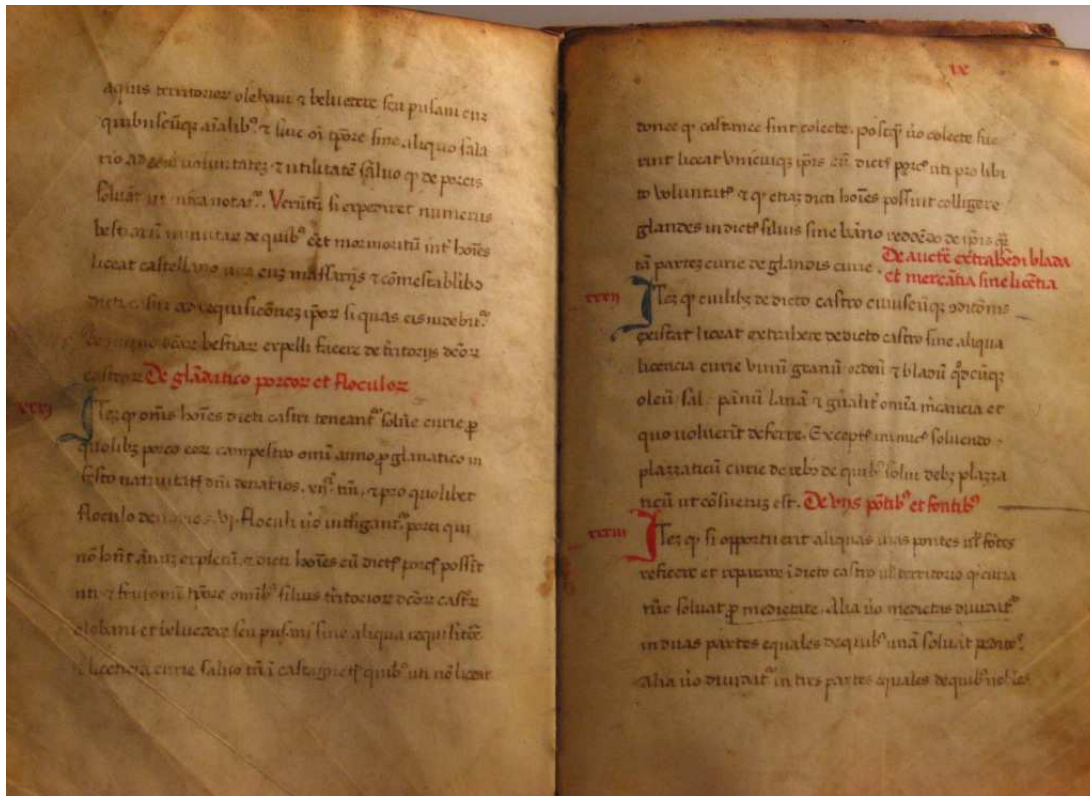 aquis territorior olebani ⁊ beluerere seu pusani cuz
quibuscūqʒ aīalibꝰ ⁊ hoc oī tpōre sine aliquo sala
rio ad eoꝝ uoluntateʒ ⁊ utilitatē saluo qꝫ de porcis
soluāt ut infra notatᵘʳ. Verūtū si expediret numerus
bestiarū minutaꝝ de quibꝰ eēt mormoritū int̄ hoīes
liceat castellano una cuʒ massarijs ⁊ cōmestabilibꝰ
dicti castri ad requisicōneʒ ipoꝝ si quas eis uidebitᵘʳ
bestiaꝝ expelli facere de t̄ritorijs dcōꝝ
castroꝝ De glādatico porcoꝝ et floculoꝝ
xxxj
Iteʒ qꝫ om̄s hoīes dicti castri teneantᵘʳ soluē curie ꝓ
quolibʒ porco eoꝝ campestro omī anno ꝓ glanatico in
festo natiuitatis dn̄i denarios. vijᵗ. tm̄, ⁊ pro quolibet
floculo denarios. vj. floculi ūo intligantᵘʳ porci qui
nō hn̄t ānuʒ expletū, ⁊ dicti hoīes cū dictis porcis possīt
uti ⁊ frui omī tpōre omibꝰ siluis t̄ritorioꝝ dcōꝝ castꝝ
olebani et beluedere seu pusani sine aliqua requisitōe
⁊ licencia curie saluo tn̄ ī castagnetis quibꝰ uti nō liceat
ix
donec qꝫ castanee sint colecte. postqꝫ ūo colecte fue
rint liceat vnicuiqʒ ipīs cū dictis porcis uti pro libi
to voluntatis ⁊ qꝫ etiaʒ dicti hoīes possint colligere
glandes in dictis siluis sine bāno reddēdo de ipīs qᵃʳ
tā parteʒ curie de glandis curie. De auctē extrahēdi blada
et mercātia sine licētia
xxxij
Iteʒ qꝫ cuilibʒ de dicto castro cuiuscūqʒ ꝯditōnis
existat liceat extrahere de dicto castro sine aliqua
licencia curie vinū granū ordeū ⁊ bladū qd̄cūqʒ
oleū sal pānū lanā ⁊ gn̄alit̄ omīa m̄cancia et
quo uoluerīt deferre. Exceptis inimicis soluendo
plazzaticū curie de rebꝰ de quibꝰ solui debʒ plazza
ticū ut cōsuetuʒ est. De vijs pōtibꝰ et fontibꝰ
xxxiij
Iteʒ qꝫ si opportuerit aliquas uias pontes ul̄ fōtes
reficere et reparare ī dicto castro ul̄ territorio qꝫ curia
tūc soluat ꝓ medietate. Alia ūo medietas diuidatᵘʳ
in duas partes equales de quibꝰ unā soluāt
Alia ūo diuidatᵘʳ in tres partes equales de quibꝰ